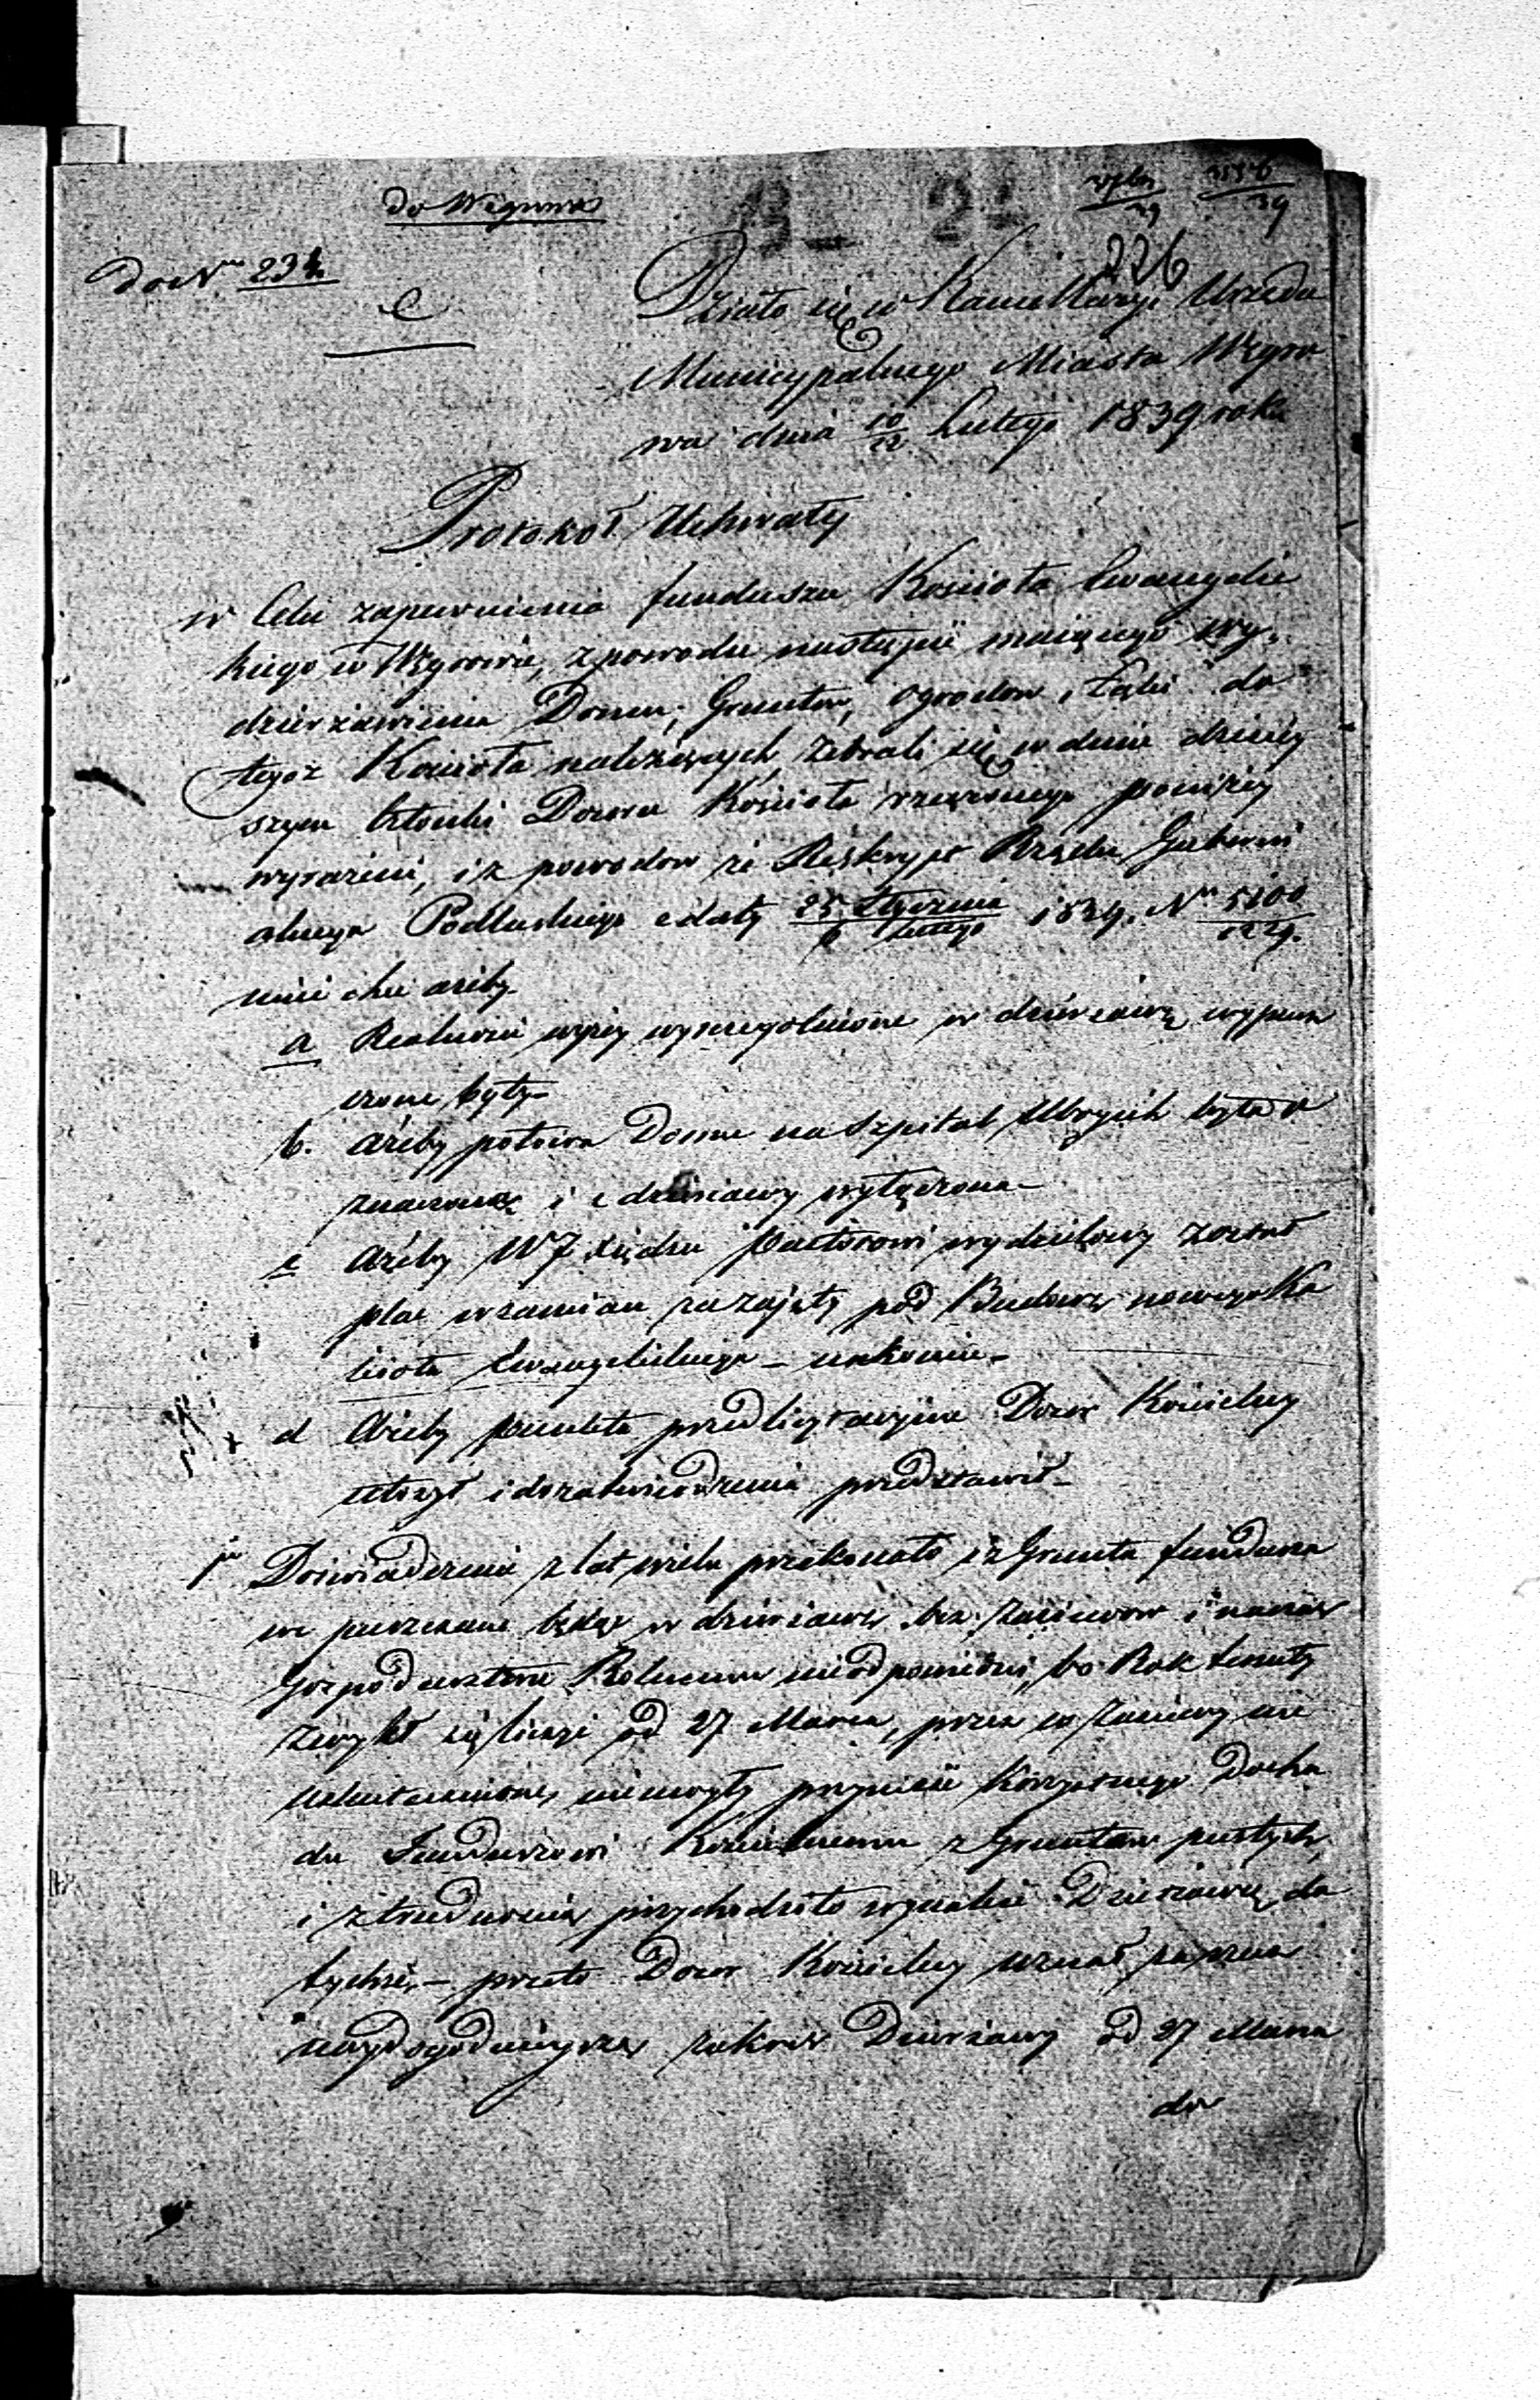 do Węgrowa
226
do Nru 234
C
Działo się w Kancellaryi Urzędu
Municypalnego Miasta Węgro
wa dnia 10/22 Lutego 1839 roku
Protokoł Uchwały
w Celu zapewnienia funduszu Kościoła Ewangelic
kiego w Węgrowie, z powodu nastąpić maiącego wy„
dzierżawienia Domu, Gruntów, Ogrodów, Łąki do
tegoż Kościoła należących, zebrali się w dniu dzisiey
szym Członki Dozoru Kościoła rzeczonego poniżey
wyrażeni, i z powodow że Reskrypt Rządu Guberni
alnego Podlaskiego z daty 25 Stycznia/6 Lutego 1839. Nr 5100
mieć chce ażeby
a Realności wyżey wyszczegolnione w dzierżawę wypusz
czone były
b. ażeby połowa Domu na Szpital Ubogich była o
znaczona i z dzierżawy wyłączona
c Ażeby WJ Xiędzu Pastorowi wydzielony został
plac w zamian za zajęty pod Budowę nowego Ko
ścioła Ewangelickiego –
d Ażeby punkta przedlicytacyjne Dozor Kościelny
ułożył i do zatwierdzenia przedstawił
1o Doświadczenie z lat wielu przekonało iż Grunta fundusza
we puszczane będąc w dzierżawę bez zasiewow i
Gospodarstwu Rolnemu nieodpowiedni, bo Rok tenuty
zwykł się liczyć od 27 Marca, przez co zasiewy nie
uskutecznione, niemogły przynieść korzystnego Docho
du Funduszowi Kościelnemu z Gruntow pustych,
i z trudnością przychodziło wynaleść Dzierżawcę do
tychże, – przeto Dozor Kościelny uznał za rzecz
naydogodnieyszą zakres Dzierżawy od 27 Marca
do